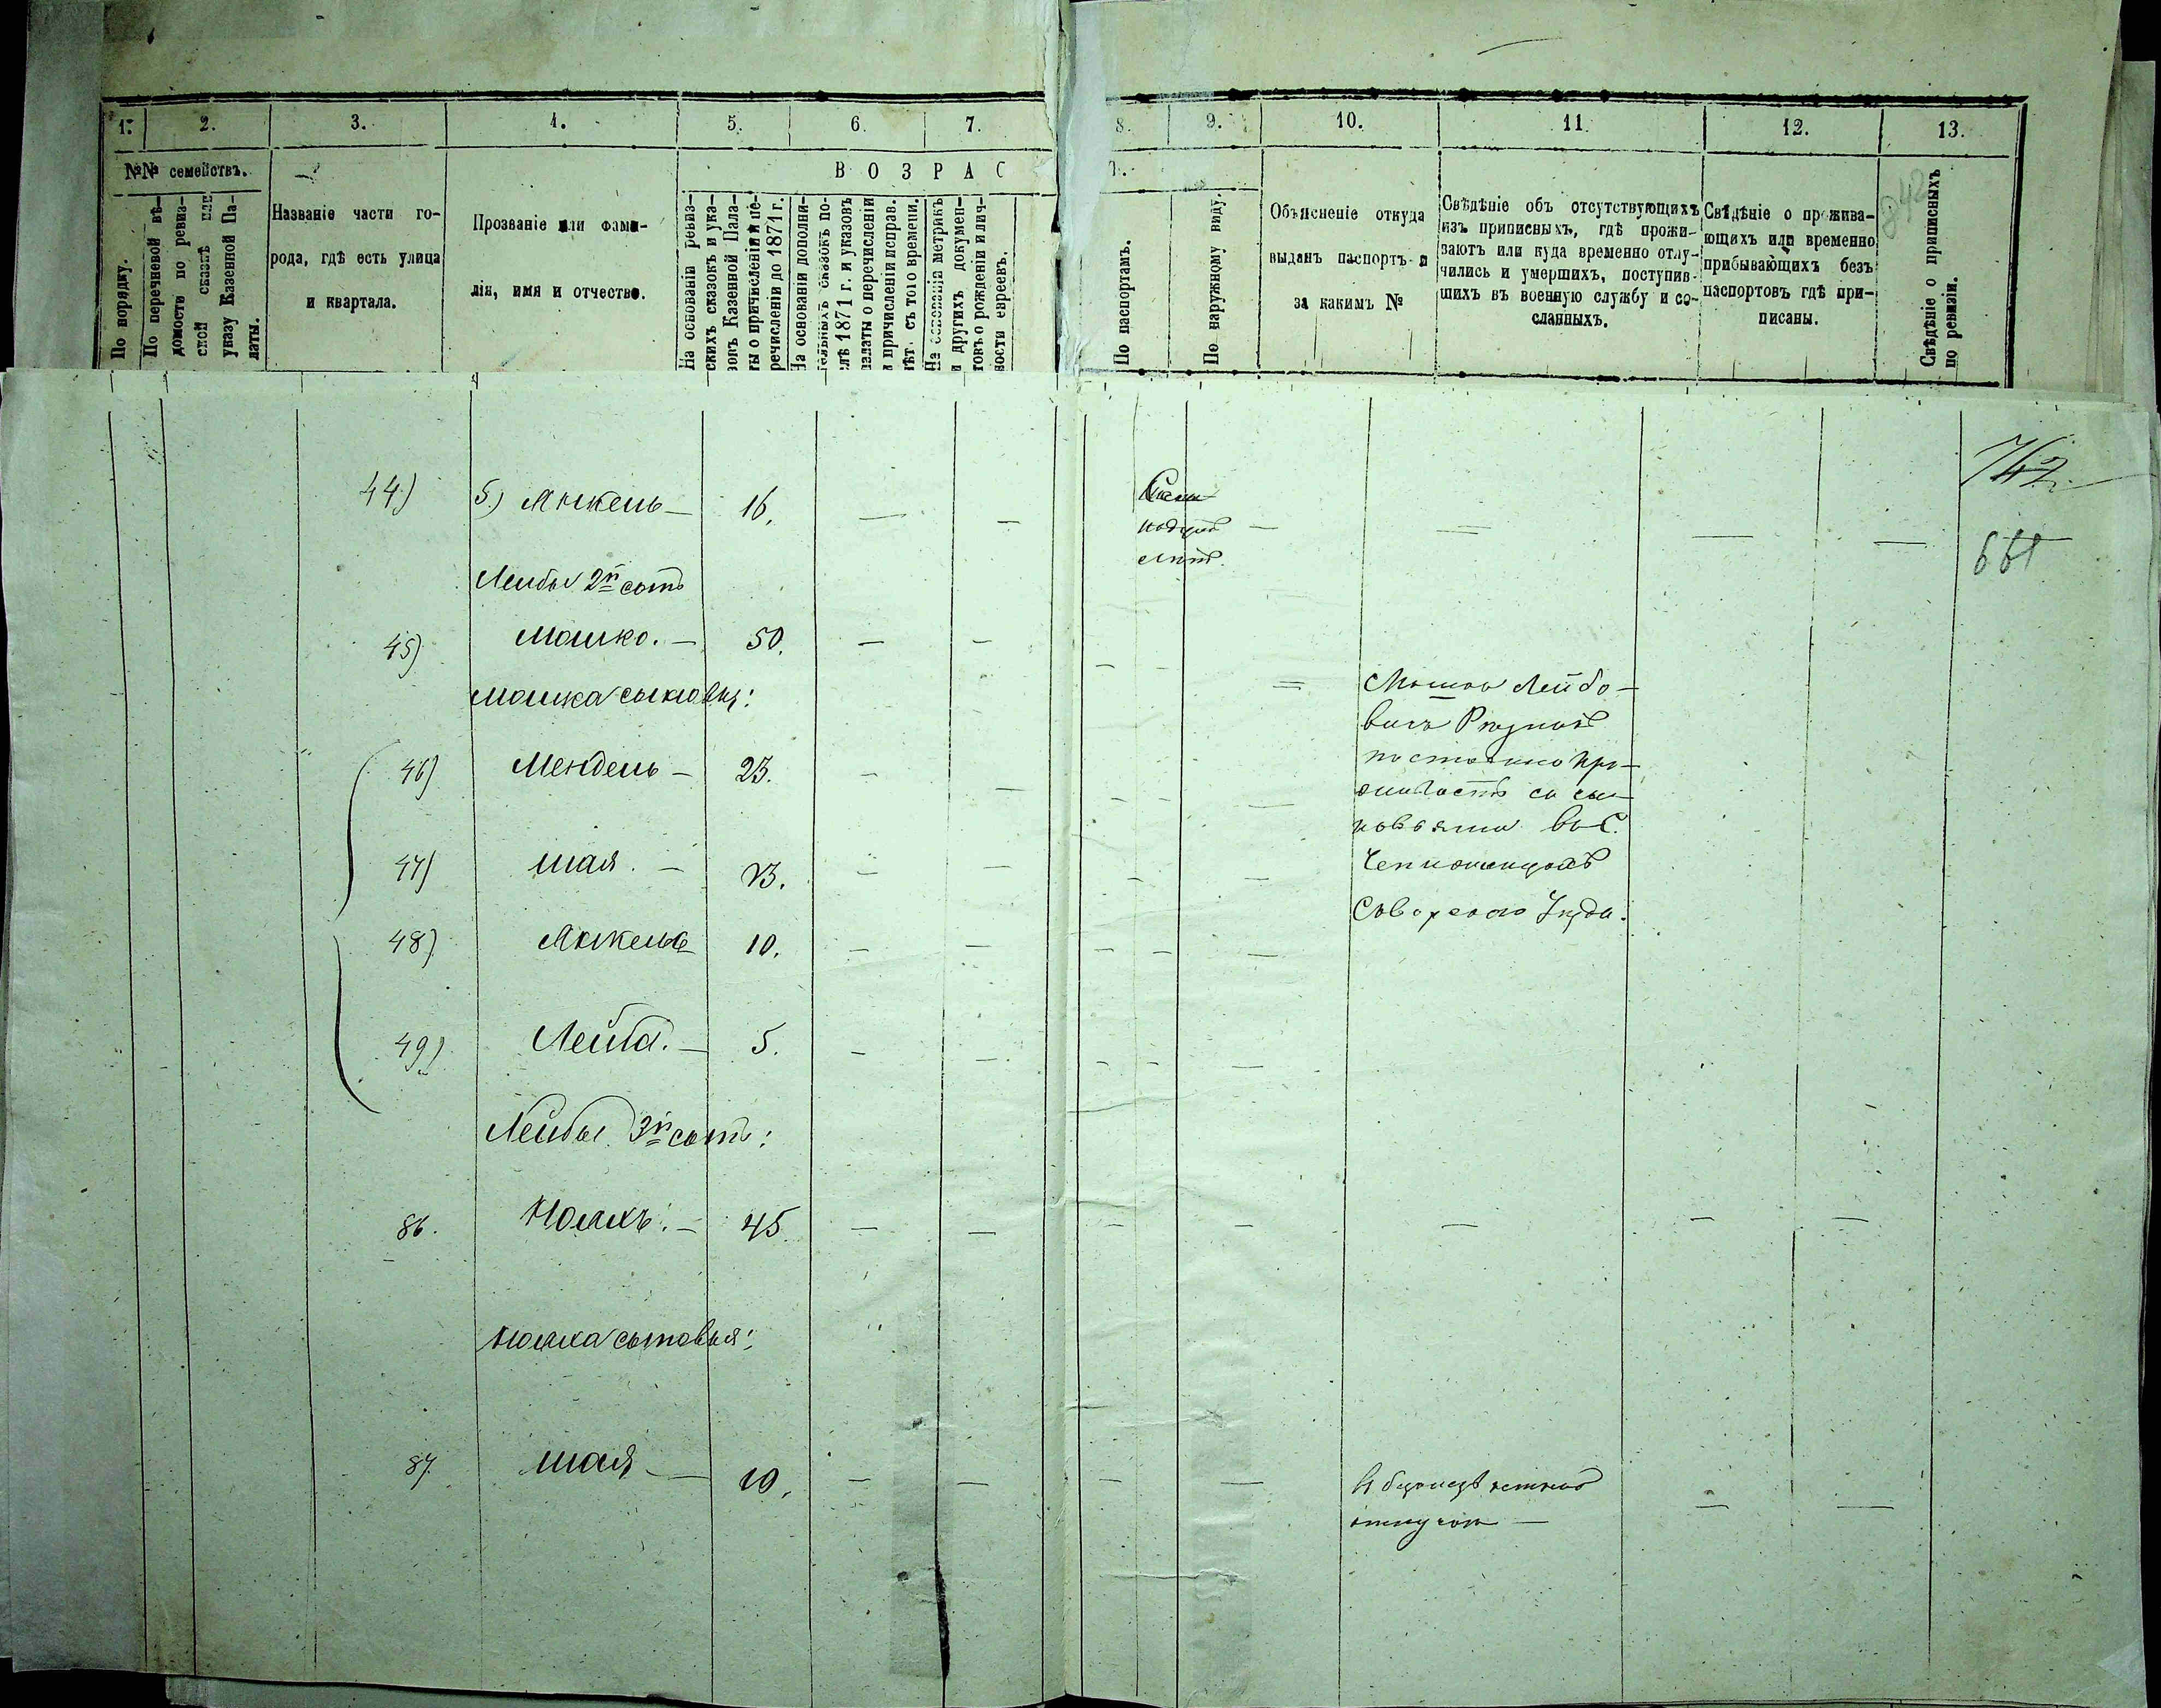 1. 2. 3. 4. 5. 6. 7. 8. 9. 10. 11. 12. 13.
№№ семействъ.
По порядку.
По перечневой вѣ-
домости по ревиз-
ской сказкѣ или
указу Казенной Па-
латы.
Названіе части го-
рода, гдѣ есть улица
и квартала.
Прозваніе или фами-
лія, имя и отчество.
ВОЗРАС
Т.
На основаніи ревиз-
скихъ сказокъ и ука-
зовъ Казенной Пала-
ты о причисленіи и пе-
речисленіи до 1871 г.
На основаніи дополни-
тельныхъ сказокъ по-
слѣ 1871 г. и указовъ
палаты о перечисленіи
и причисленіи исправ.
лѣт. съ того времени.
На основаніи метрикъ
и другихъ докумен-
товъ о рожденіи и лич-
ности евреевъ.
По паспортамъ.
По наружному виду.
Объясненіе откуда
выданъ паспортъ и
за какимъ №
Свѣдѣніе объ отсутствующихъ
изъ приписныхъ, гдѣ прожи-
ваютъ или куда временно отлу-
чились и умершихъ, поступив-
шихъ въ военную службу и со-
сланныхъ.
Свѣдѣніе о прожива-
ющихъ или временно
прибывающихъ безъ
паспортовъ гдѣ при-
писаны.
Свѣдѣніе о приписныхъ
по ревизіи.
742
44) 5.) Янкель — 16. — —
661
Лейбы 2й сынъ
45) Мошко. — 50. — —
Мошка сыновья:
46) Мендель — 23. — —
47) Шая. — 13. — —
48) Янкель 10. — —
49) Лейба. — 5. — —
Мошко Лейбо-
вичъ
постоянно про-
живаетъ съ сы-
новьями въ С.
Уѣзда.
Лейбы 3й сынъ:
86. Ноахъ. — 45 — —
Ноаха сыновья:
87. Шая — 10. — —
В безъизвѣстной
отлучкѣ —